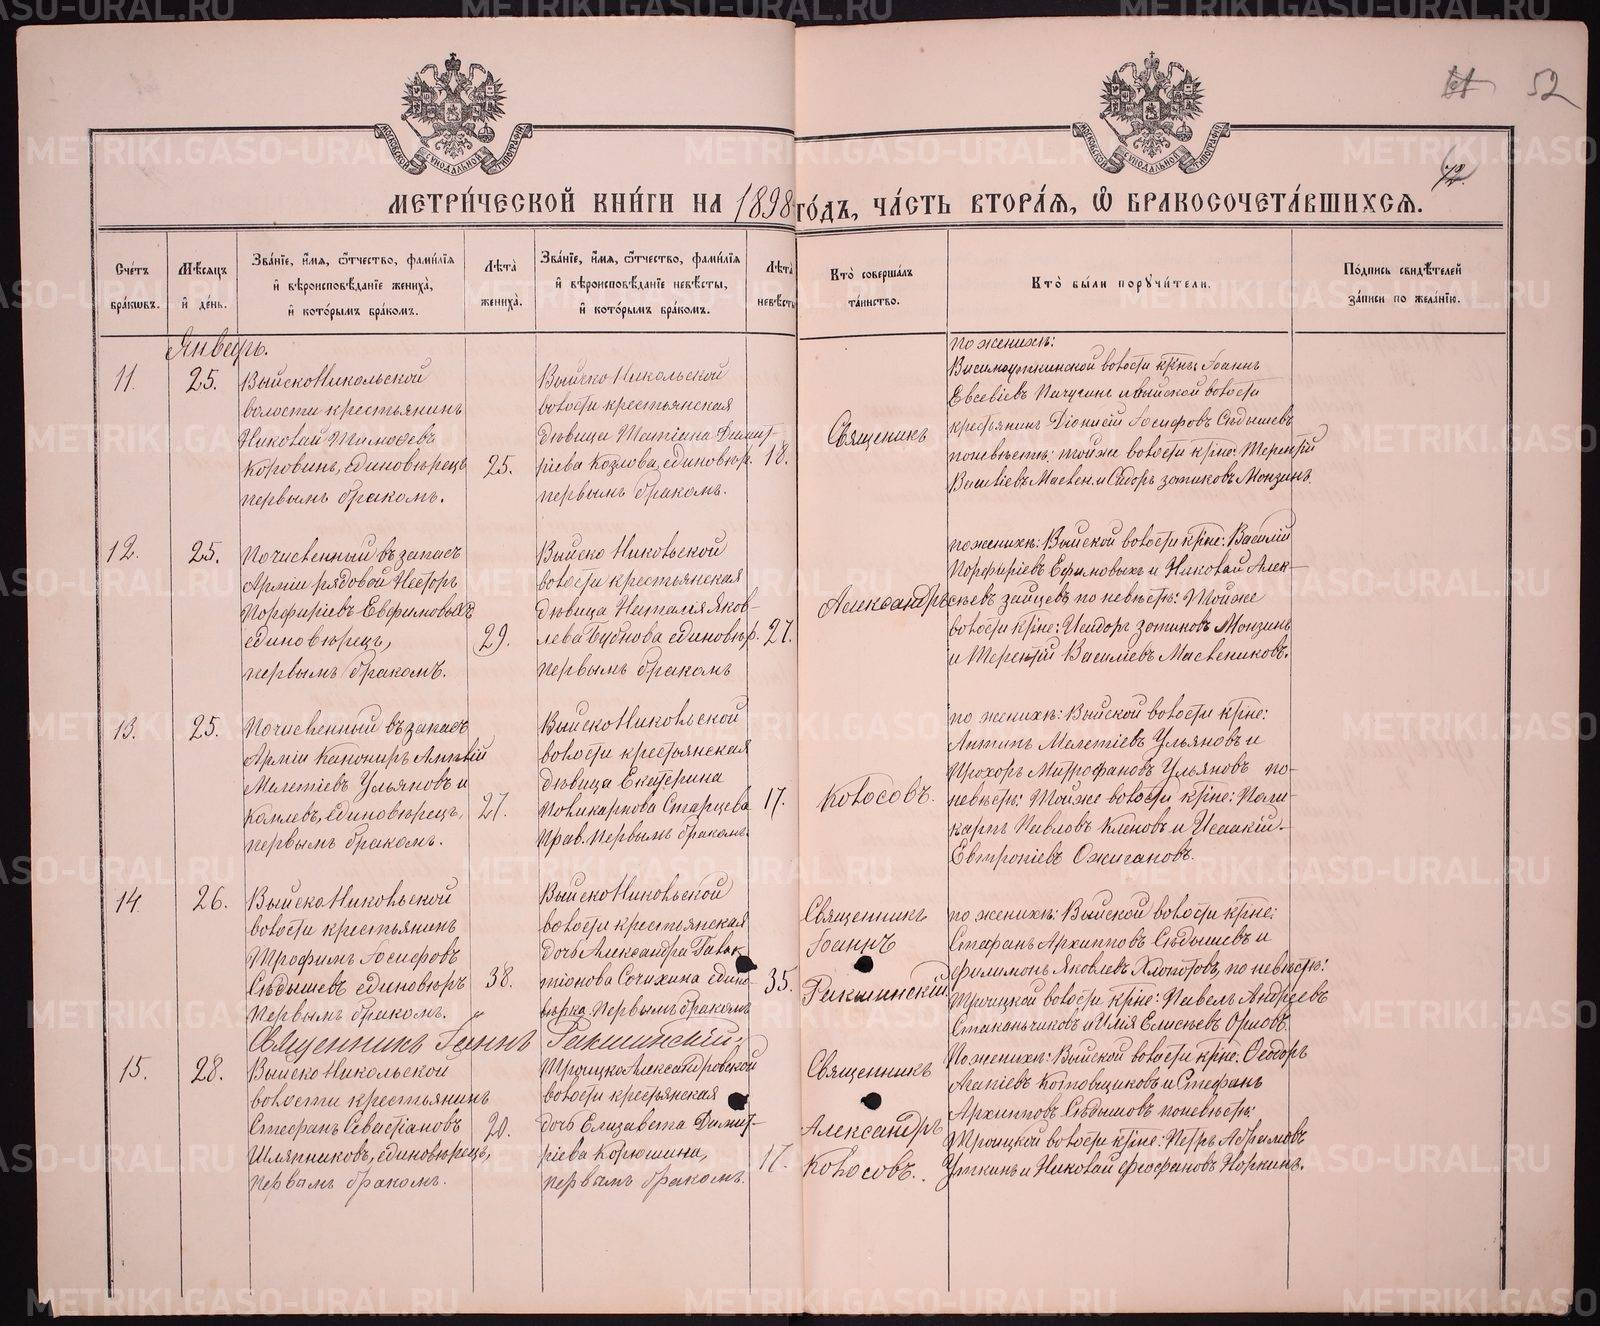 52
72.
МЕТРИ́ЧЕСКОЙ КНИ́ГИ НА 1898 ГО́ДЪ, ЧА́СТЬ ВТОРА́Я, Ѡ БРАКОСОЧЕТА́ВШИХСЯ.
Сче́тъ бра́ковъ.
Мѣ́сяцъ и де́нь.
Зва́нїе, и́мя, ѻ́тчество, фами́лїя и вѣроисповѣ́данїе жениха̀, и кото́рымъ бра́комъ.
Лѣта̀ жениха̀.
Зва́нїе, и́мя, ѻ́тчество, фами́лїя и вѣроисповѣ́данїе невѣ́сты, и кото́рымъ бра́комъ.
Лѣта̀ невѣ́сты
Кто̀ соверша́лъ та́инство.
Кто̀ бы́ли поручи́тели.
По́дпись свидѣ́телей за́писи по жела́нїю.
Январь.
11.
25.
Выйско Никольской
волости крестьянинъ
Николай Тимоѳевъ
Коровинъ, единовѣрецъ
первымъ бракомъ.
25.
Выйско Никольской
волости крестьянская
дѣвица Татіана Димит-
ріева Козлова, единовѣр.
первымъ бракомъ.
18.
Священикъ
по женихѣ:
Висимоуткинской волости крнъ: Іоаннъ
Евсевіевъ Пичугинъ и Выйской волости
крестьянинъ Діонисій Іосифовъ Сѣдышевъ
по невѣстѣ: тойже волости крне: Терентій
Василіевъ Маслен. и Сидоръ Зотиковъ Монзинъ.
12.
25.
Почисленный въ запасъ
Арміи рядовой Несторъ
Порфиріевъ Евфимовыхъ
единовѣрецъ,
первымъ бракомъ.
29.
Выйско Никольской
волости крестьянская
дѣвица Наталія Яков-
лева Бубнова единовѣр.
первымъ бракомъ
27.
Александръ
по женихѣ: Выйской волости крне: Василій
Порфиріевъ Ефимовыхъ и Николай Алек-
сѣевъ Зайцевъ по невѣстѣ: Тойже
волости крне: Исидоръ Зотиковъ Монзинъ
и Терентій Василіевъ Маслениковъ.
13.
25.
Почисленный въ запасъ
Арміи Канониръ
Мелетіевъ Ульяновъ и
единовѣрецъ,
первымъ бракомъ.
27.
Выйско Никольской
волости крестьянская
дѣвица Екатерина
Поликарпова Старцева
Прав. первымъ бракомъ
17.
Колосовъ.
по женихѣ: Выйской волости крне:
Антипъ Мелетіевъ Ульяновъ и
Прохоръ Митрофановъ Ульяновъ по-
невѣстѣ: Тойже волости крне: Поли-
карпъ Павловъ Кленовъ и Исаакій
Евтропіевъ Ожигановъ.
14.
26.
Выйско Никольской
волости крестьянинъ
Трофимъ Іосифовъ
Сѣдышевъ единовѣръ
первымъ бракомъ.
38.
Выйско Никольской
волости крестьянская
дочь Александра Галак-
тіонова Сочихина едино-
вѣрка. Первымъ бракомъ
35.
Священникъ
Іоаннъ
Ракшинскій
по женихѣ: Выйской волости крне:
Стефанъ Архипповъ Сѣдышевъ и
Филимонъ Яковлевъ Хлопотовъ, по невѣстѣ:
Троицкой волости крне: Павелъ Андреевъ
Стаканьчиковъ и Илія Елисѣевъ Орловъ.
Священникъ Іоаннъ Ракшинскій.
15.
28.
Выйско Никольской
волости крестьянинъ
Стефанъ Севастіановъ
Шляпниковъ, единовѣрецъ,
первымъ бракомъ.
20.
Троицко Александровской
волости крестьянская
дочь Елизавета Димит-
ріева Корюшина,
первымъ бракомъ.
17.
Священникъ
Александръ
Колосовъ.
По женихѣ: Выйской волости крне: Ѳеодоръ
Агапіевъ Котовщиковъ и Стефанъ
Архипповъ Сѣдышовъ по невѣстѣ:
Троицкой волости крне: Петръ Абрамовъ
Уткинъ и Николай Норкинъ.
METRIKI.GASO-URAL.RU